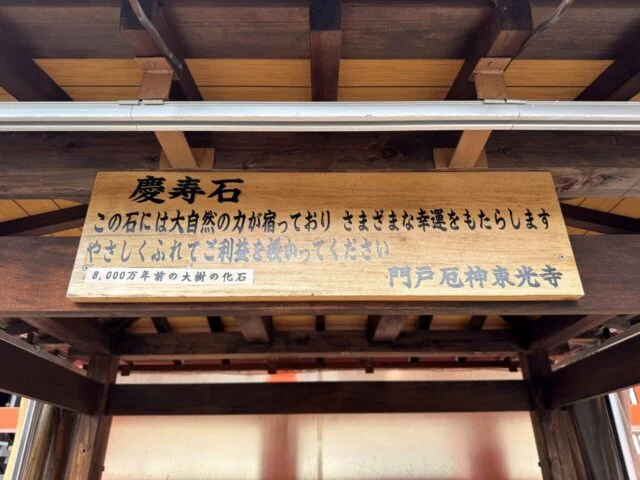 慶寿石
この石には大自然の力が宿っており さまざまな幸運をもたらします
やさしくふれてご利益を授かってください
8,000万年前の大樹の化石
門戸厄神東光寺